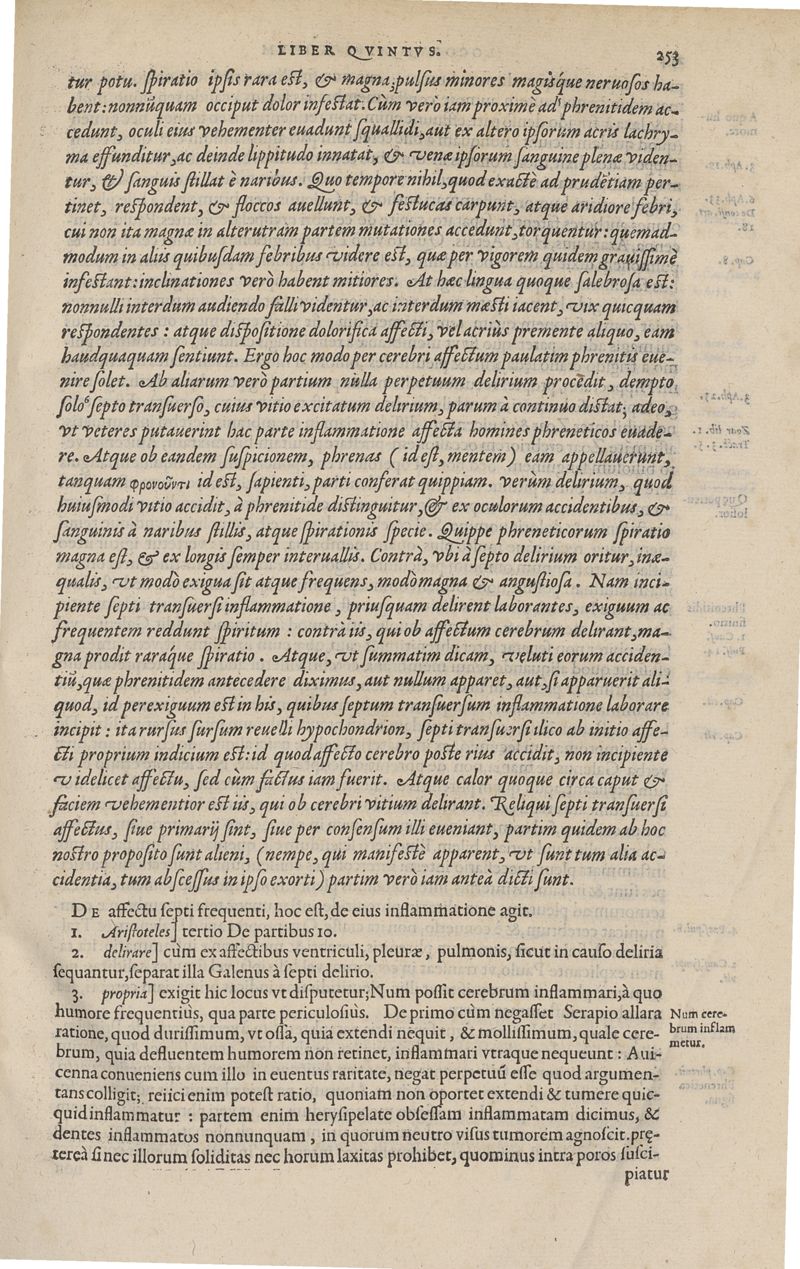 LIBER QVINTVS.
253
tur potu. ſpiratio ipſis rara eſt, & magna; pulſus minores magiſq́ue neruoſos ha-
bent: nonnũquam occiput dolor infeſtat. Cùm verò iam proximè ad phrenitidem ac-
cedunt, oculi eius vehementer euadunt ſquallidi, aut ex altero ipſorum acris lachry-
ma effunditur, ac deinde lippitudo innatat, & venæ ipſorum ſanguine plenæ viden-
tur, & ſanguis ſtillat è naribus. Quo tempore nihil, quod exactè ad prudẽtiam per-
tinet, reſpondent, & floccos auellunt, & feſtucas carpunt, atque aridiore febri,
cui non ita magnæ in alterutram partem mutationes accedunt, torquentur: quemad-
modum in aliis quibuſdam febribus videre eſt, quæ per vigorem quidem grauiſſimè
infeſtant: inclinationes verò habent mitiores. At hæc lingua quoque ſalebroſa eſt:
nonnulli interdum audiendo falli videntur, ac interdum mæſti iacent, vix quicquam
reſpondentes : atque diſpoſitione dolorifica affecti, vel acriùs premente aliquo, eam
haudquaquam ſentiunt. Ergo hoc modo per cerebri affectum paulatim phrenitis eue-
nire ſolet. Ab aliarum verò partium nulla perpetuum delirium procedit, dempto
ſolo ſepto tranſuerſo, cuius vitio excitatum delirium, parum à continuo diſtat; adeo,
vt veteres putauerint hac parte inflammatione affecta homines phreneticos euade-
re. Atque ob eandem ſuſpicionem, phrenas ( id eſt, mentem) eam appellauerunt,
tanquam φρονοῦντι id eſt, ſapienti, parti conferat quippiam. verùm delirium, quod
huiuſmodi vitio accidit, à phrenitide diſtinguitur, & ex oculorum accidentibus, &
ſanguinis à naribus ſtillis, atque ſpirationis ſpecie. Quippe phreneticorum ſpiratio
magna eſt, & ex longis ſemper interuallis. Contrà, vbi à ſepto delirium oritur, inæ-
qualis, vt modò exigua ſit atque frequens, modò magna & anguſtioſa. Nam inci-
piente ſepti tranſuerſi inflammatione, priuſquam delirent laborantes, exiguum ac
frequentem reddunt ſpiritum : contrà iis, qui ob affectum cerebrum delirant, ma-
gna prodit raráque ſpiratio. Atque, vt ſummatim dicam, veluti eorum acciden-
tiũ, quæ phrenitidem antecedere diximus, aut nullum apparet, aut, ſi apparuerit ali-
quod, id perexiguum eſt in his, quibus ſeptum tranſuerſum inflammatione laborare
incipit : ita rurſus ſurſum reuelli hypochondrion, ſepti tranſuerſi ilico ab initio affe-
cti proprium indicium eſt: id quod affecto cerebro poſte rius accidit, non incipiente
videlicet affectu, ſed cùm factus iam fuerit. Atque calor quoque circa caput &
faciem vehementior eſt iis, qui ob cerebri vitium delirant. Reliqui ſepti tranſuerſi
affectus, ſiue primarij ſint, ſiue per conſenſum illi eueniant, partim quidem ab hoc
noſtro propoſito ſunt alieni, (nempe, qui manifeſtè apparent, vt ſunt tum alia ac-
cidentia, tum abſceſſus in ipſo exorti) partim verò iam anteà dicti ſunt.
DE affectu ſepti frequenti, hoc eſt, de eius inflammatione agit.
1. Ariſtoteles] tertio De partibus 10.
2. delirare] cùm ex affectibus ventriculi, pleuræ, pulmonis, ſicut in cauſo deliria
ſequantur, ſeparat illa Galenus à ſepti delirio.
3. propria] exigit hic locus vt diſputetur; Num poſſit cerebrum inflammari, à quo
humore frequentiùs, qua parte periculoſiùs. De primo cùm negaſſet Serapio allata
ratione, quod duriſſimum, vt oſſa, quia extendi nequit, & molliſſimum, quale cere-
brum, quia defluentem humorem non retinet, inflammari vtraque nequeunt : Aui-
cenna conueniens cum illo in euentus raritate, negat perpetuũ eſſe quod argumen-
tans colligit; reiici enim poteſt ratio, quoniam non oportet extendi & tumere quic-
quid inflammatur : partem enim heryſipelate obſeſſam inflammatam dicimus, &
dentes inflammatos nonnunquam, in quorum neutro viſus tumorem agnoſcit. prę-
tereà ſi nec illorum ſoliditas nec horum laxitas prohibet, quominus intra poros ſuſci-
piatur
Num cere-
brum inflam
metur.